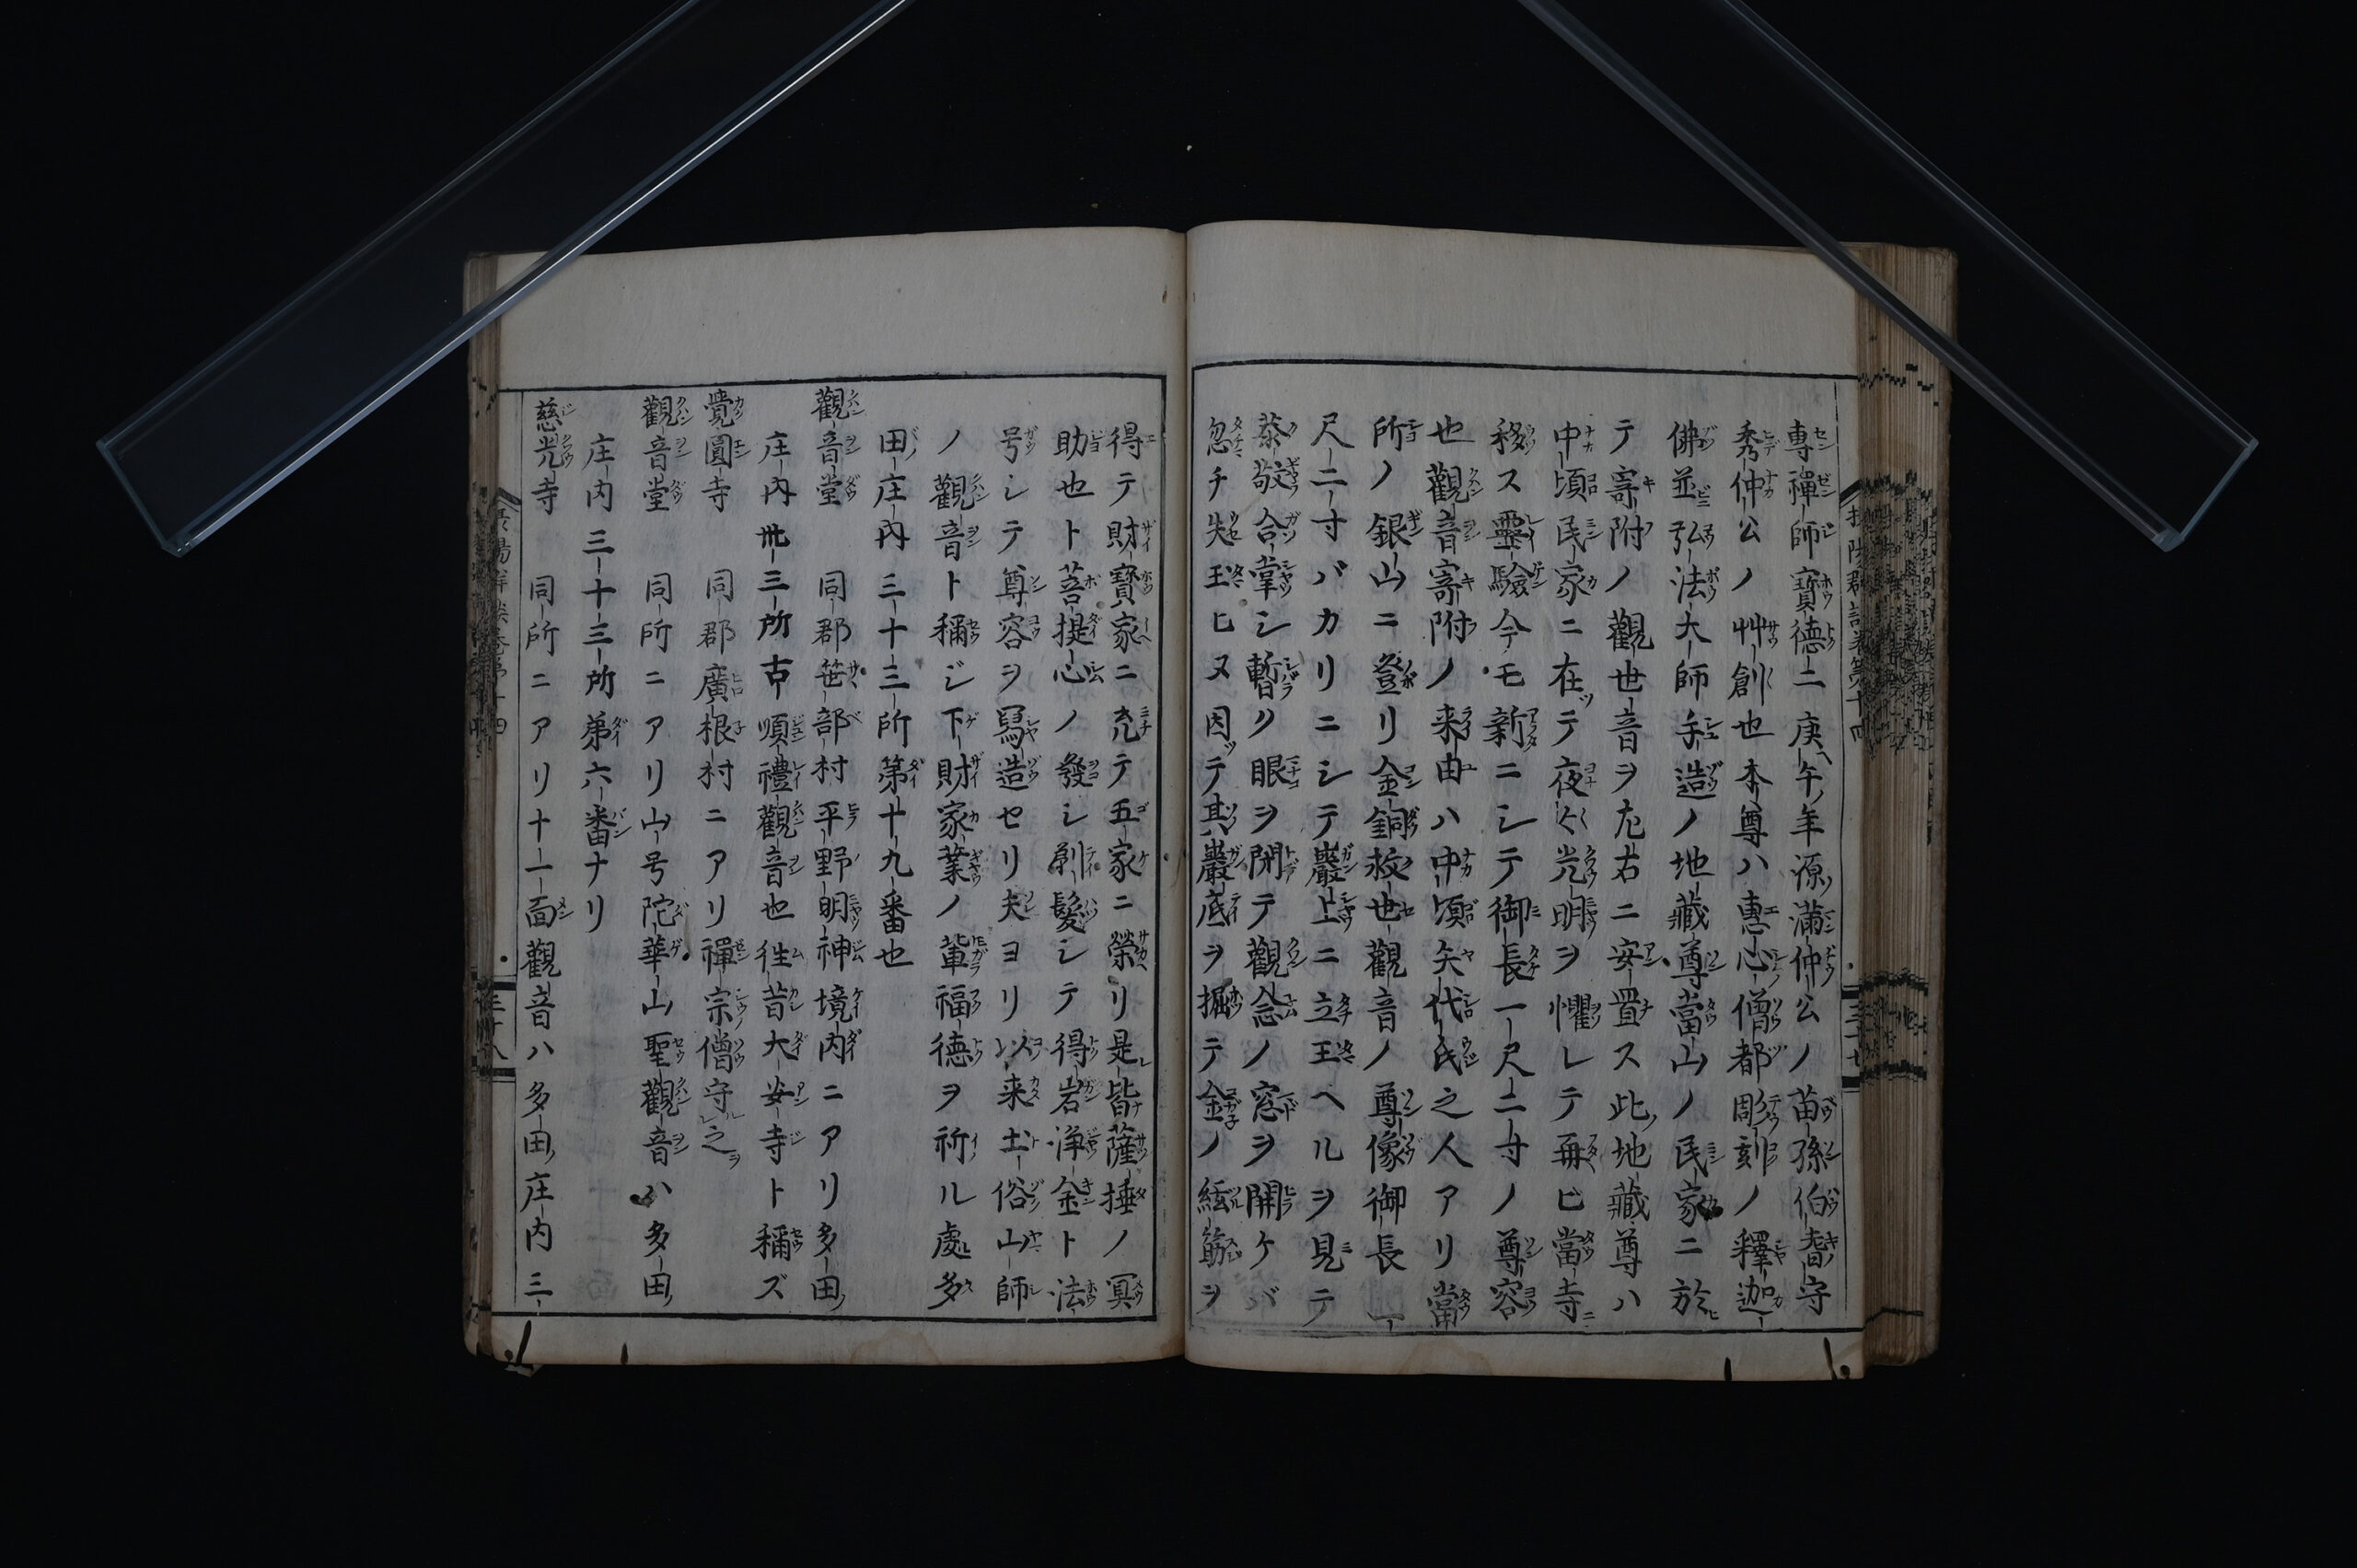 專禪師寶德二庚午年源滿仲公ノ苗孫伯耆守
秀仲公ノ艸創也本尊ハ惠心僧都彫刻ノ釋迦一
佛並弘法大師手造ノ地藏尊當山ノ民家ニ於
テ寄附ノ觀世音ヲ左右ニ安置ス此地藏尊ハ
中頃民家ニ在テ夜々光明ヲ懼レテ再ビ當寺ニ
移ス靈驗今モ新ニシテ御長一尺二寸ノ尊容
也觀音寄附ノ来由ハ中頃矢代氏之人アリ當
所ノ銀山ニ登リ金銅救世觀音ノ尊像御長一
尺二寸バカリニシテ巖上ニ立玉ヘルヲ見テ
恭敬合掌シ暫ク眼ヲ閉テ觀念ノ窓ヲ開ケバ
忽チ失玉ヒヌ因テ其巖底ヲ掘テ金ノ絃筋ヲ
得テ財寶家ニ充テ五家ニ榮リ是皆薩捶ノ冥
助也ト菩提心ノ發シ剃髮シテ得岩浄金ト法
号シテ尊容ヲ冩造セリ夫ヨリ以来土俗山師
ノ觀音ト稱ジ下財家業ノ輩福德ヲ祈ル處多
田庄内三十三所第十九番也
觀音堂 同郡笹部村平野明神境内ニアリ多田
庄内卅三所古順禮觀音也徃昔大安寺ト稱ズ
覺圓寺 同郡廣根村ニアリ禪宗僧守之
觀音堂 同所ニアリ山号陀華山聖觀音ハ多田
庄内三十三所第六番ナリ
慈光寺 同所ニアリ十一面觀音ハ多田庄内三
三十八